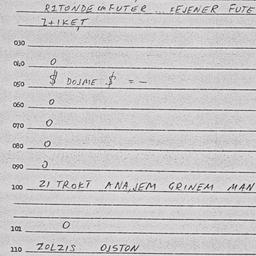 RITONDE IN FUTER ... EJENER FUTE
030
040 0
050 $ DOJME $ = -
060 0
070 0
080 0
090 0
100 21 TROKT ANAJEM GRINEM MAN
101 0
110 ZOLZIS OJSTON